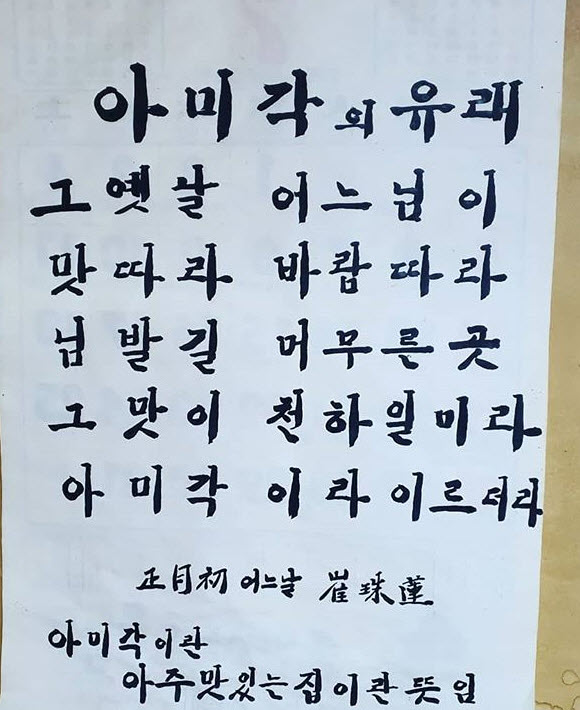 아미각의 유래
그 옛날 어느 님이
맛따라 바람따라
님 발길 머무른 곳
그 맛이 천하일미라
아미각이라 이르더라
正月初 어느날 崔珠蓮
아미각이란
아주맛있는집이란뜻임